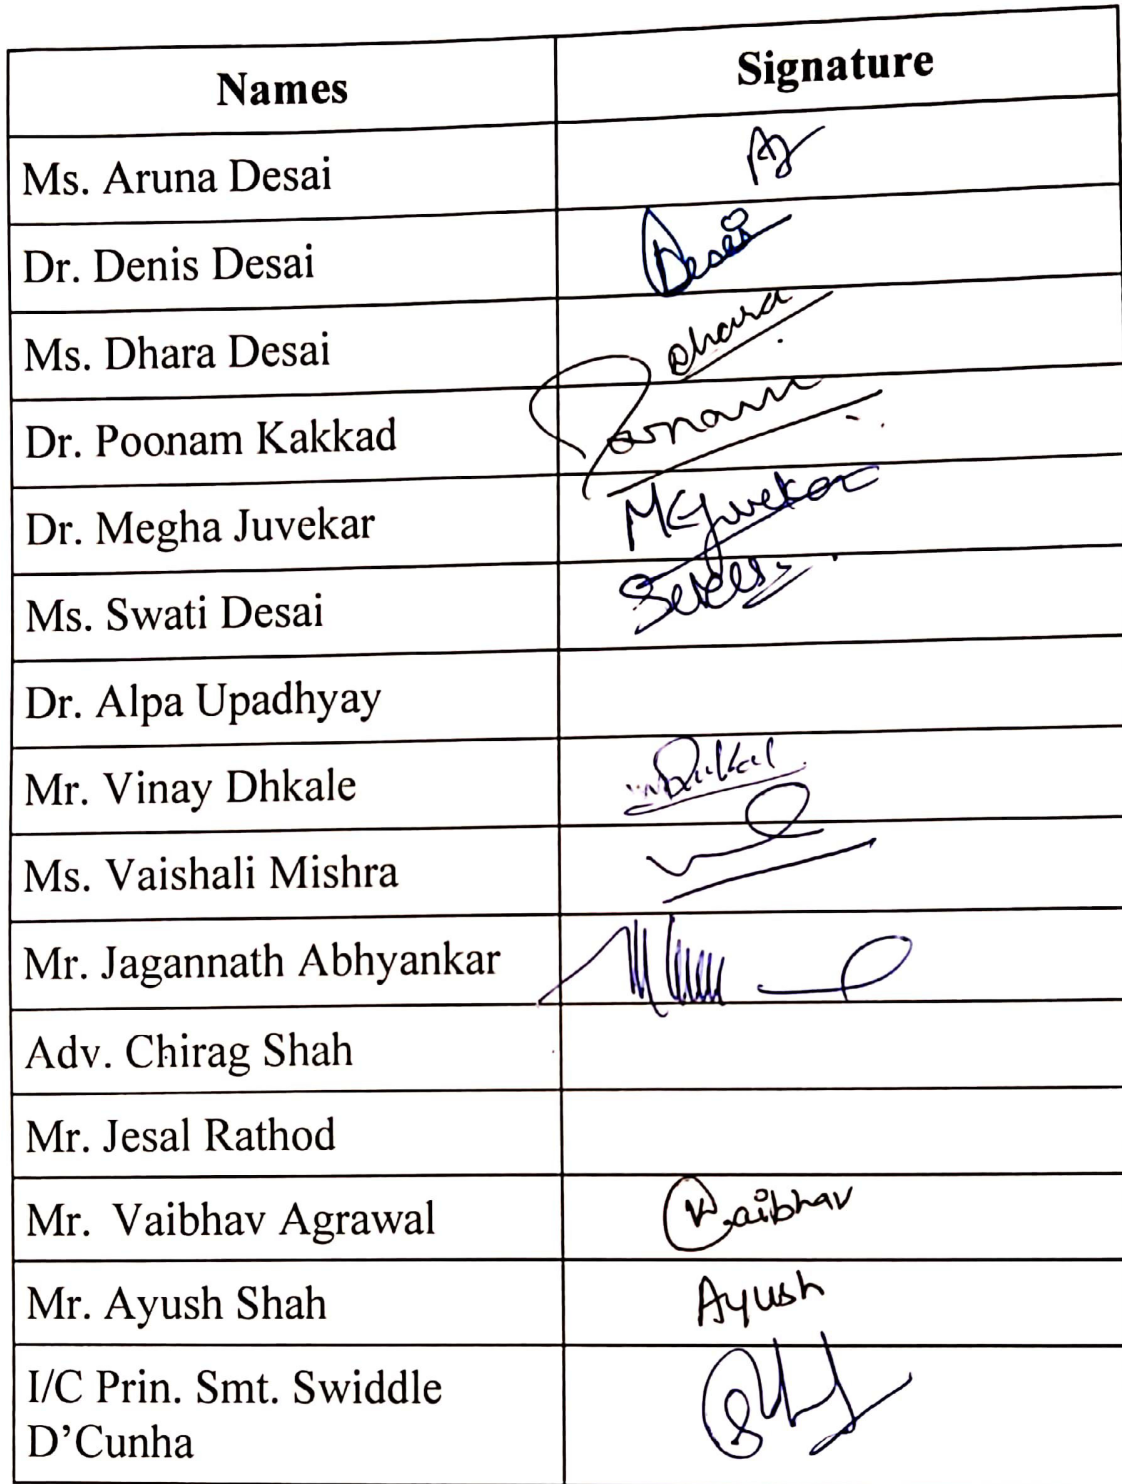 Names Signature
Ms. Aruna Desai
Dr. Denis Desai Desai
Ms. Dhara Desai Dhara
Dr. Poonam Kakkad Poonam
Dr. Megha Juvekar MGJuvekar
Ms. Swati Desai
Dr. Alpa Upadhyay
Mr. Vinay Dhkale
Ms. Vaishali Mishra
Mr. Jagannath Abhyankar
Adv. Chirag Shah
Mr. Jesal Rathod
Mr. Vaibhav Agrawal Vaibhav
Mr. Ayush Shah Ayush
I/C Prin. Smt. Swiddle
D’Cunha